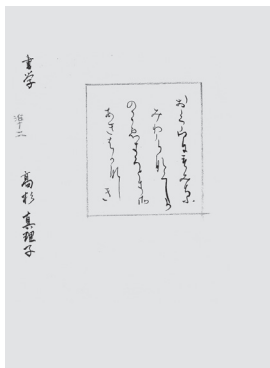 おく山にもみちふ
みわけなくしか
のこゑきくときそ
あきはかなしき
書学
高杉真理子